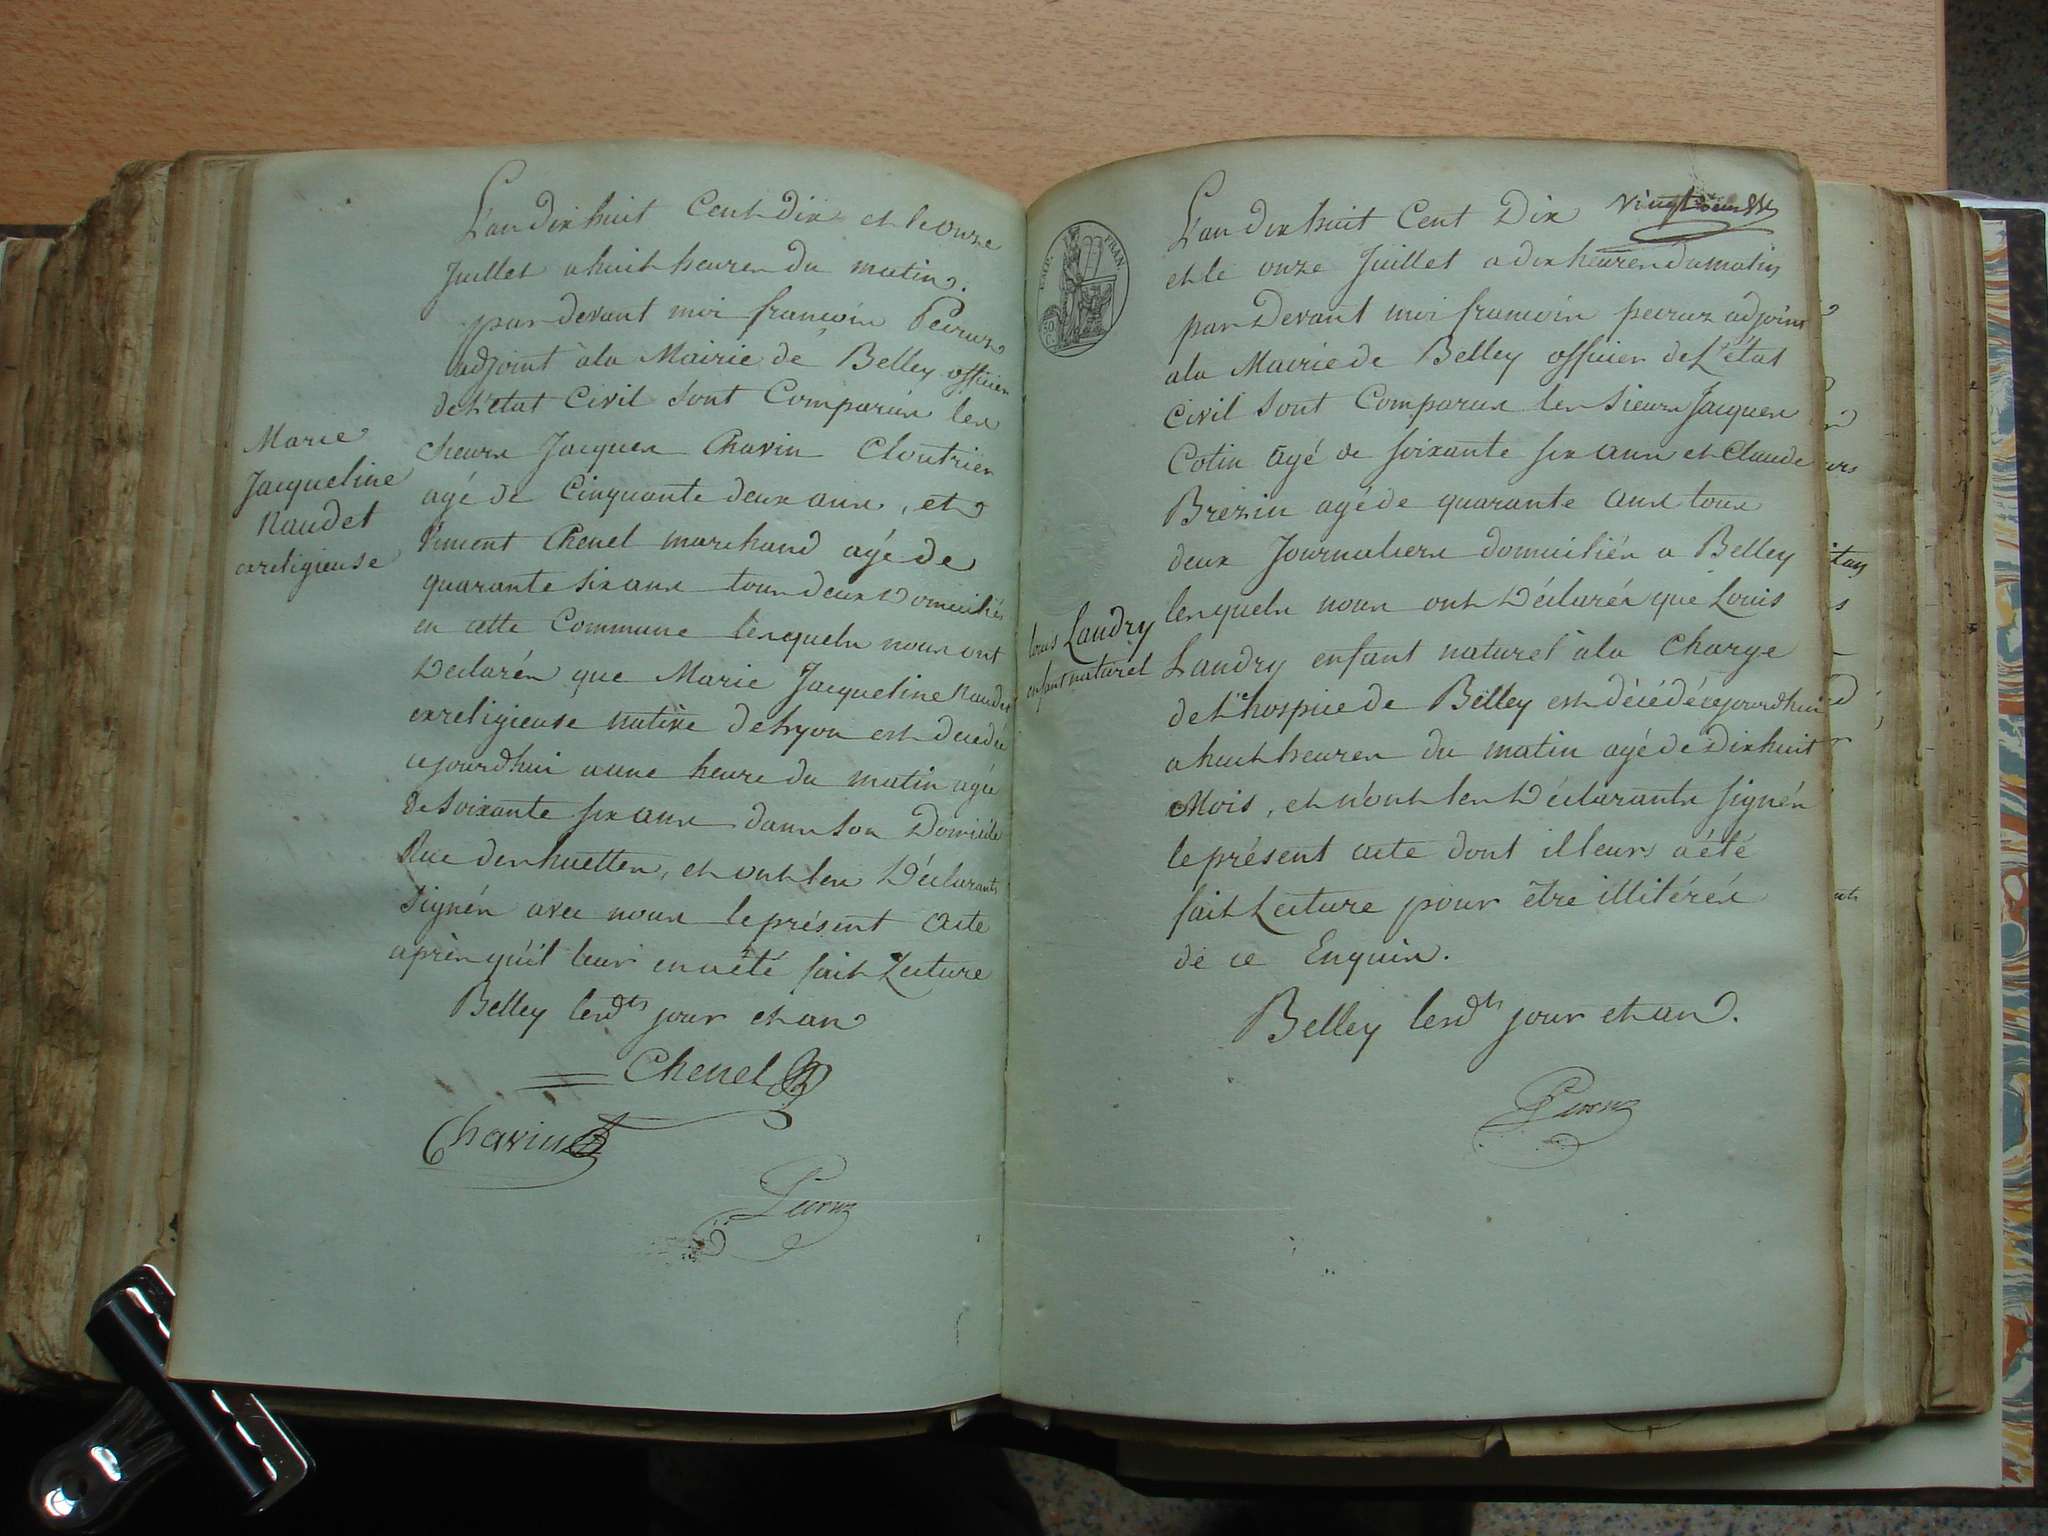 L'an dix huit Cent Dix et le onze
Juillet a huit heures du matin.
par devant moi françois Peiruz
adjoint à la Mairie de Belley officier
de L'état Civil sont Comparus les
Jacques Chavin Cloutrier
agé de Cinquante deux ans, et
Vincent Chenel marchand agé de
quarante six ans tous deux Domiciliés
en cette Commune lesquels nous ont
Déclarés que Marie Jacqueline Naudet
exreligieuse native de Lyon est décédée
cejourdhui a une heure du matin agée
de Soixante six ans dans son Domicile
Rue des huettes, et ont les Déclarants
Signés avec nous le présent acte
après qu'il leur en a été fait Lecture
Belley lesdts jour et an
Chenel
Chavin
Peiruz
Marie
Jacqueline
Naudet
exreligieuse
EMP. FRAN.
50
C.
L'an dix huit Cent Dix
et le onze Juillet a dix heures du matin
par Devant moi françois peiruz adjoint
a la Mairie de Belley officier de L'état
Civil sont Comparus les sieurs Jacques
Cotin agé de soixante six ans et Claude
Brezin agé de quarante ans tous
deux Journaliers domiciliés a Belley
lesquels nous ont Déclarés que Louis
Landry enfant naturel à la Charge
de L'hospice de Belley est décédé cejourdhui
a huit heures du matin agé de Dix huit
Mois, et n'ont les Déclarants signés
le présent acte dont il leurs a été
fait Lecture pour être illitérés
de ce Enquis.
Belley lesdts jour et an.
Peiruz
louis Landry
enfant naturel